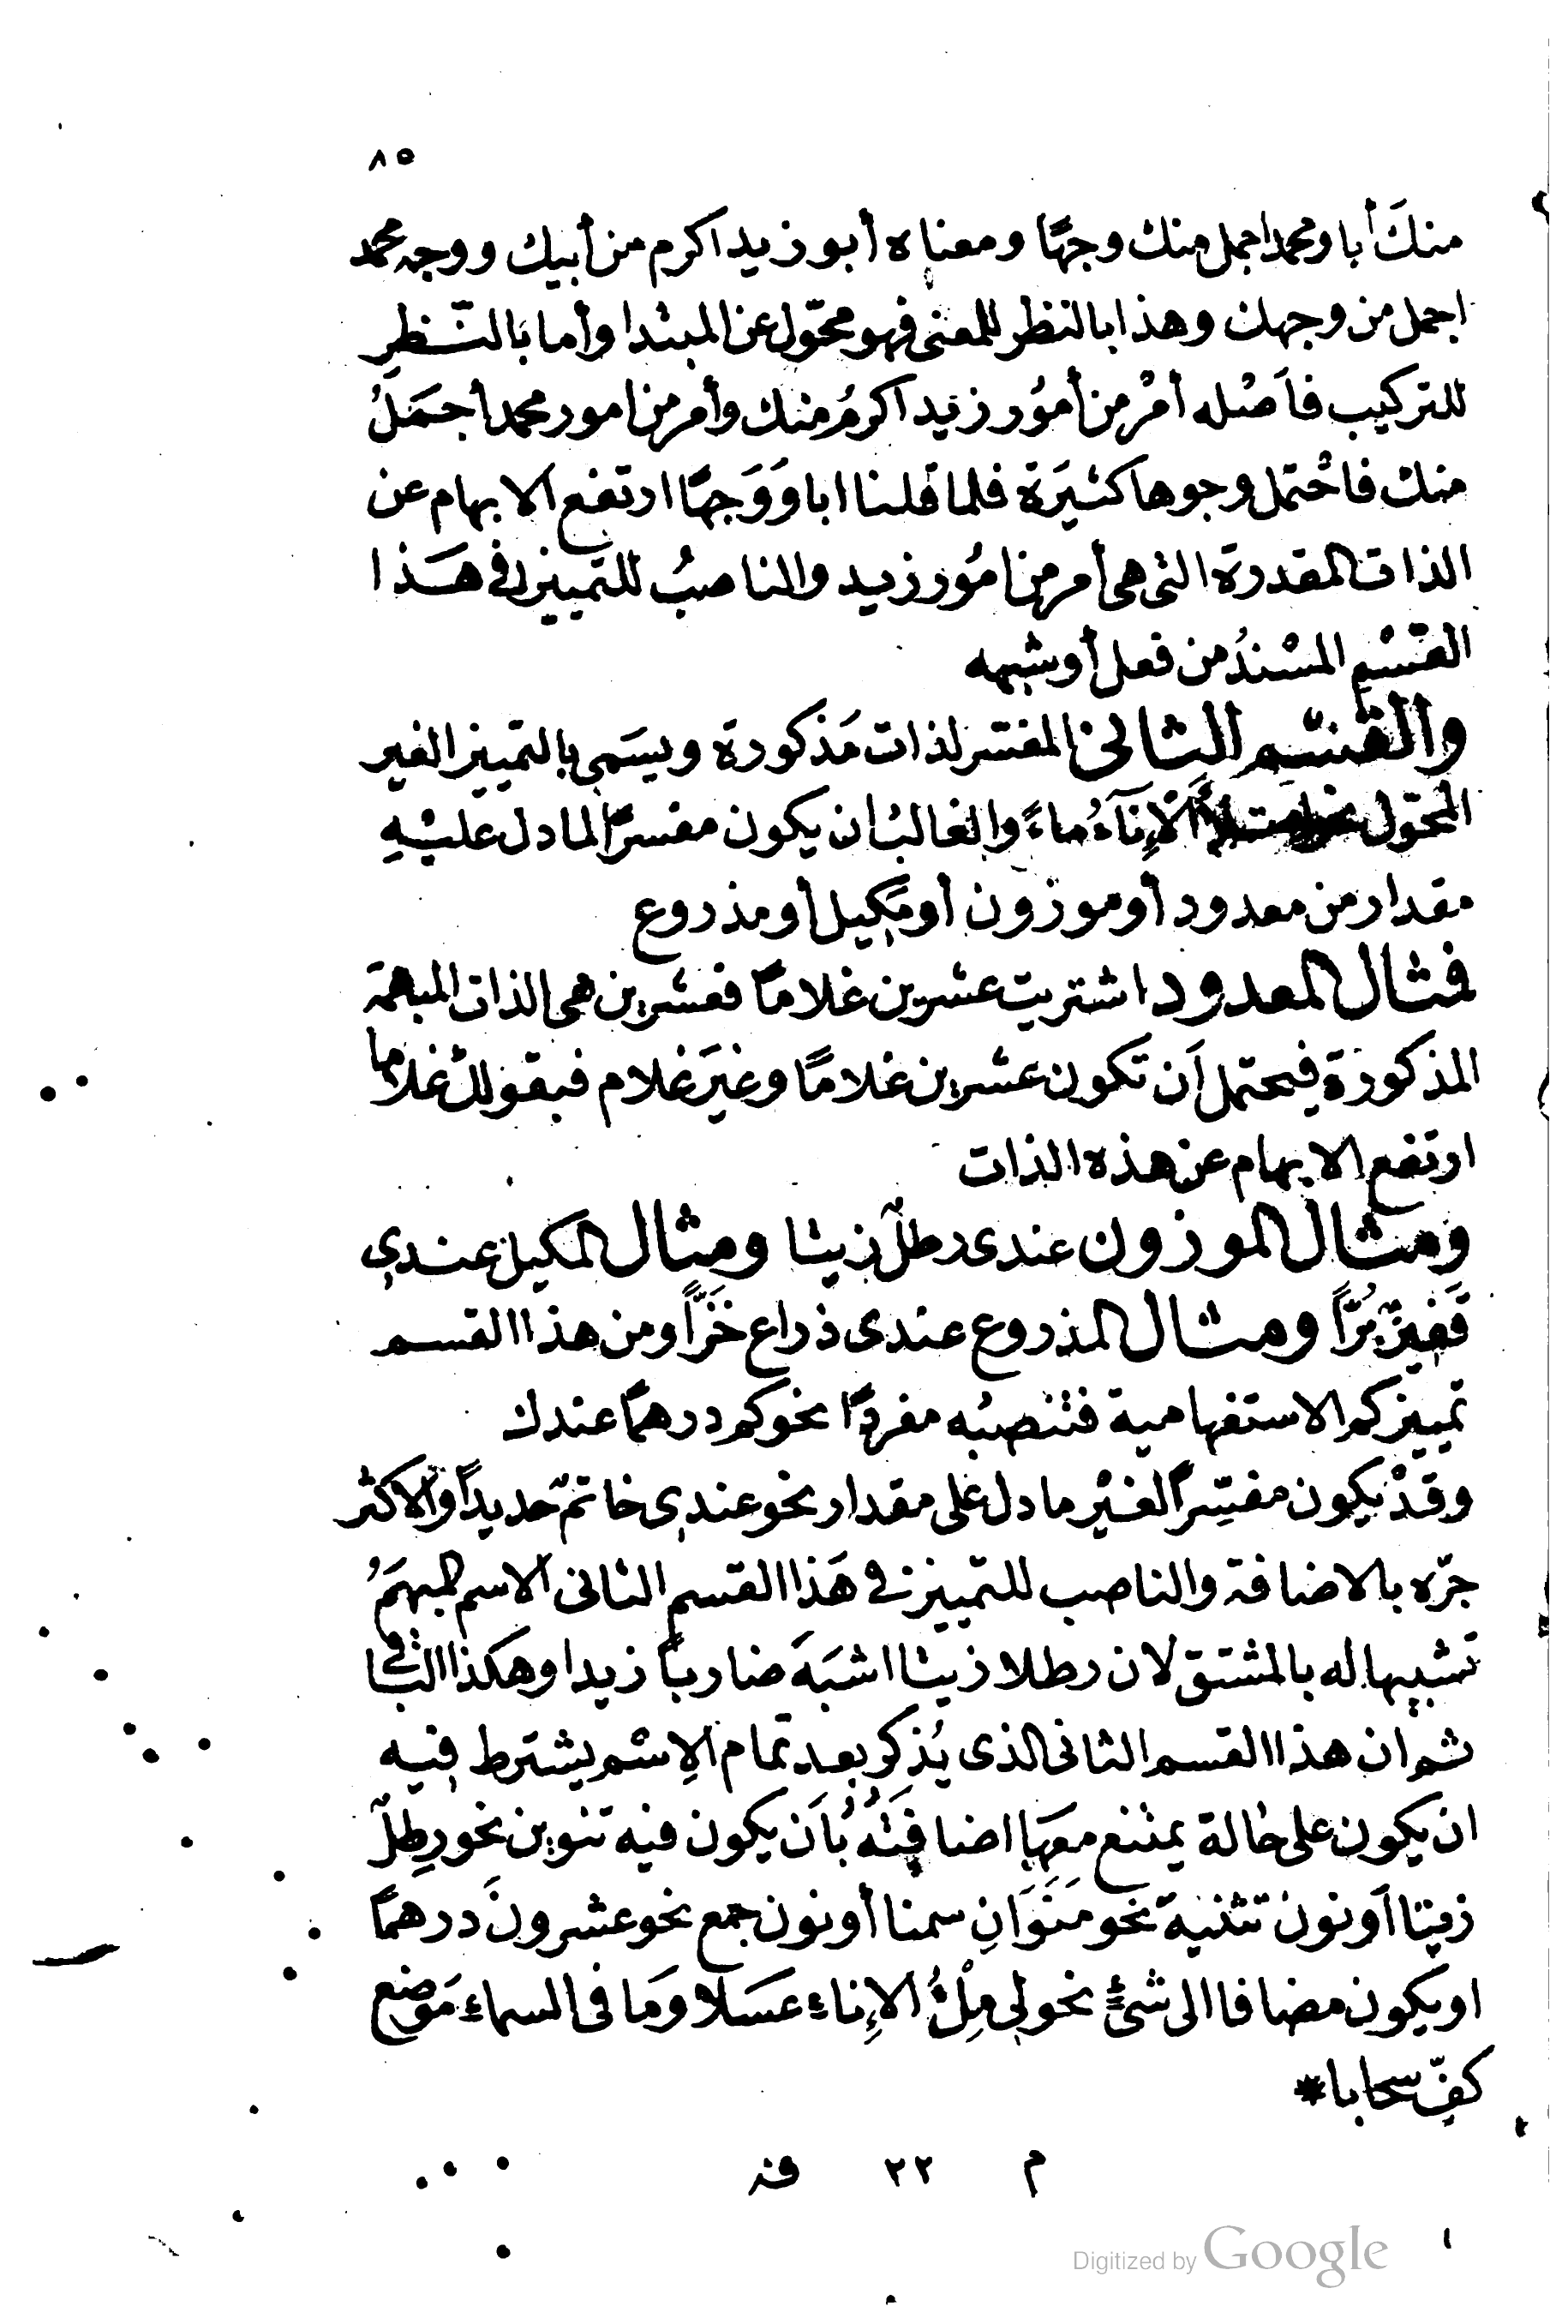 ٨٥
منكَ أبا ومحمد اجمل منك وجهًا ومعناه أبو زيد اكرم من أبيك ووجه محمد
اجمل من وجهك وهذا بالنظر للمعنى فهو محوّل عن المبتدا وأما بالنّظرِ
للتركيب فاَصْله أمْر من أمُور زيد اكرمُ منك وأمر من امور محمد أجمَلُ
منك فاحْتمل وجوها كثيَرة فلما قلنا ابا وَوَجهًا ارتفع الابهام عن
الذات المقدرة التى هى أمر من امُور زيد والناصبُ للتمييز فى هَذا
القسْم المسْندُ من فعل أو شبهه
والقسْم الثانى المفسّر لذات مَذكورة ويسَمى بالتمييز الغير
المحوّل الإنَآءُ ماءً والغالبُ ان يكون مفسرًا لما دل عليْهِ
مقدار من معدود أو موزون أو مَكيل أو مذروع
فمثال المعدود اشتريت عشرين غلامًا فعشرين هى الذات المبهمة
المذكورَة فيحتمل اَن تكون عشرين غلامًا وغيَر غلام فبقولك غلاما
ارتفع الابهام عن هذه الذات
ومثال الموزون عندى رطلٌ زيتا ومثال المكيل عندى
قَفيزٌ بُرًّا ومثال المذروع عندى ذراع خَزًّا ومن هذا القسم
تمييز كم الاستفهامية فتنصبُه مفردًا نحو كم درهمًا عندك
وقدْ يكون مفسّرًا لغيْر ما دل على مقدار نحو عندى خاتمٌ حديدًا والاكثر
جرّه بالاضافة والناصب للتمييز فى هَذا القسم الثانى الاسم المبهَمُ
تشبيها له بالمشتق لان رطلا زيتا اشبَهَ ضاربًا زيدا وهكذا الباقى
ثم ان هذا القسم الثانى الذى يُذكر بعد تمام الإسْم يشترط فيه
ان يكون على حالة يمتنع معَها اضافَتُهُ بأَن يكون فيه تنوين نحو رطلٌ
زيتا أو نون تثنية نحو مَنَوَانِ سمنا أو نون جمع نحو عشرونَ درهمًا
او يكون مضافا الى شئٍ نحو لى مِلْءُ الإناءِ عسَلا وَما فى السماءِ مَوضع
كفّ سحابا *
م ٢٢ فة
Digitized by Google